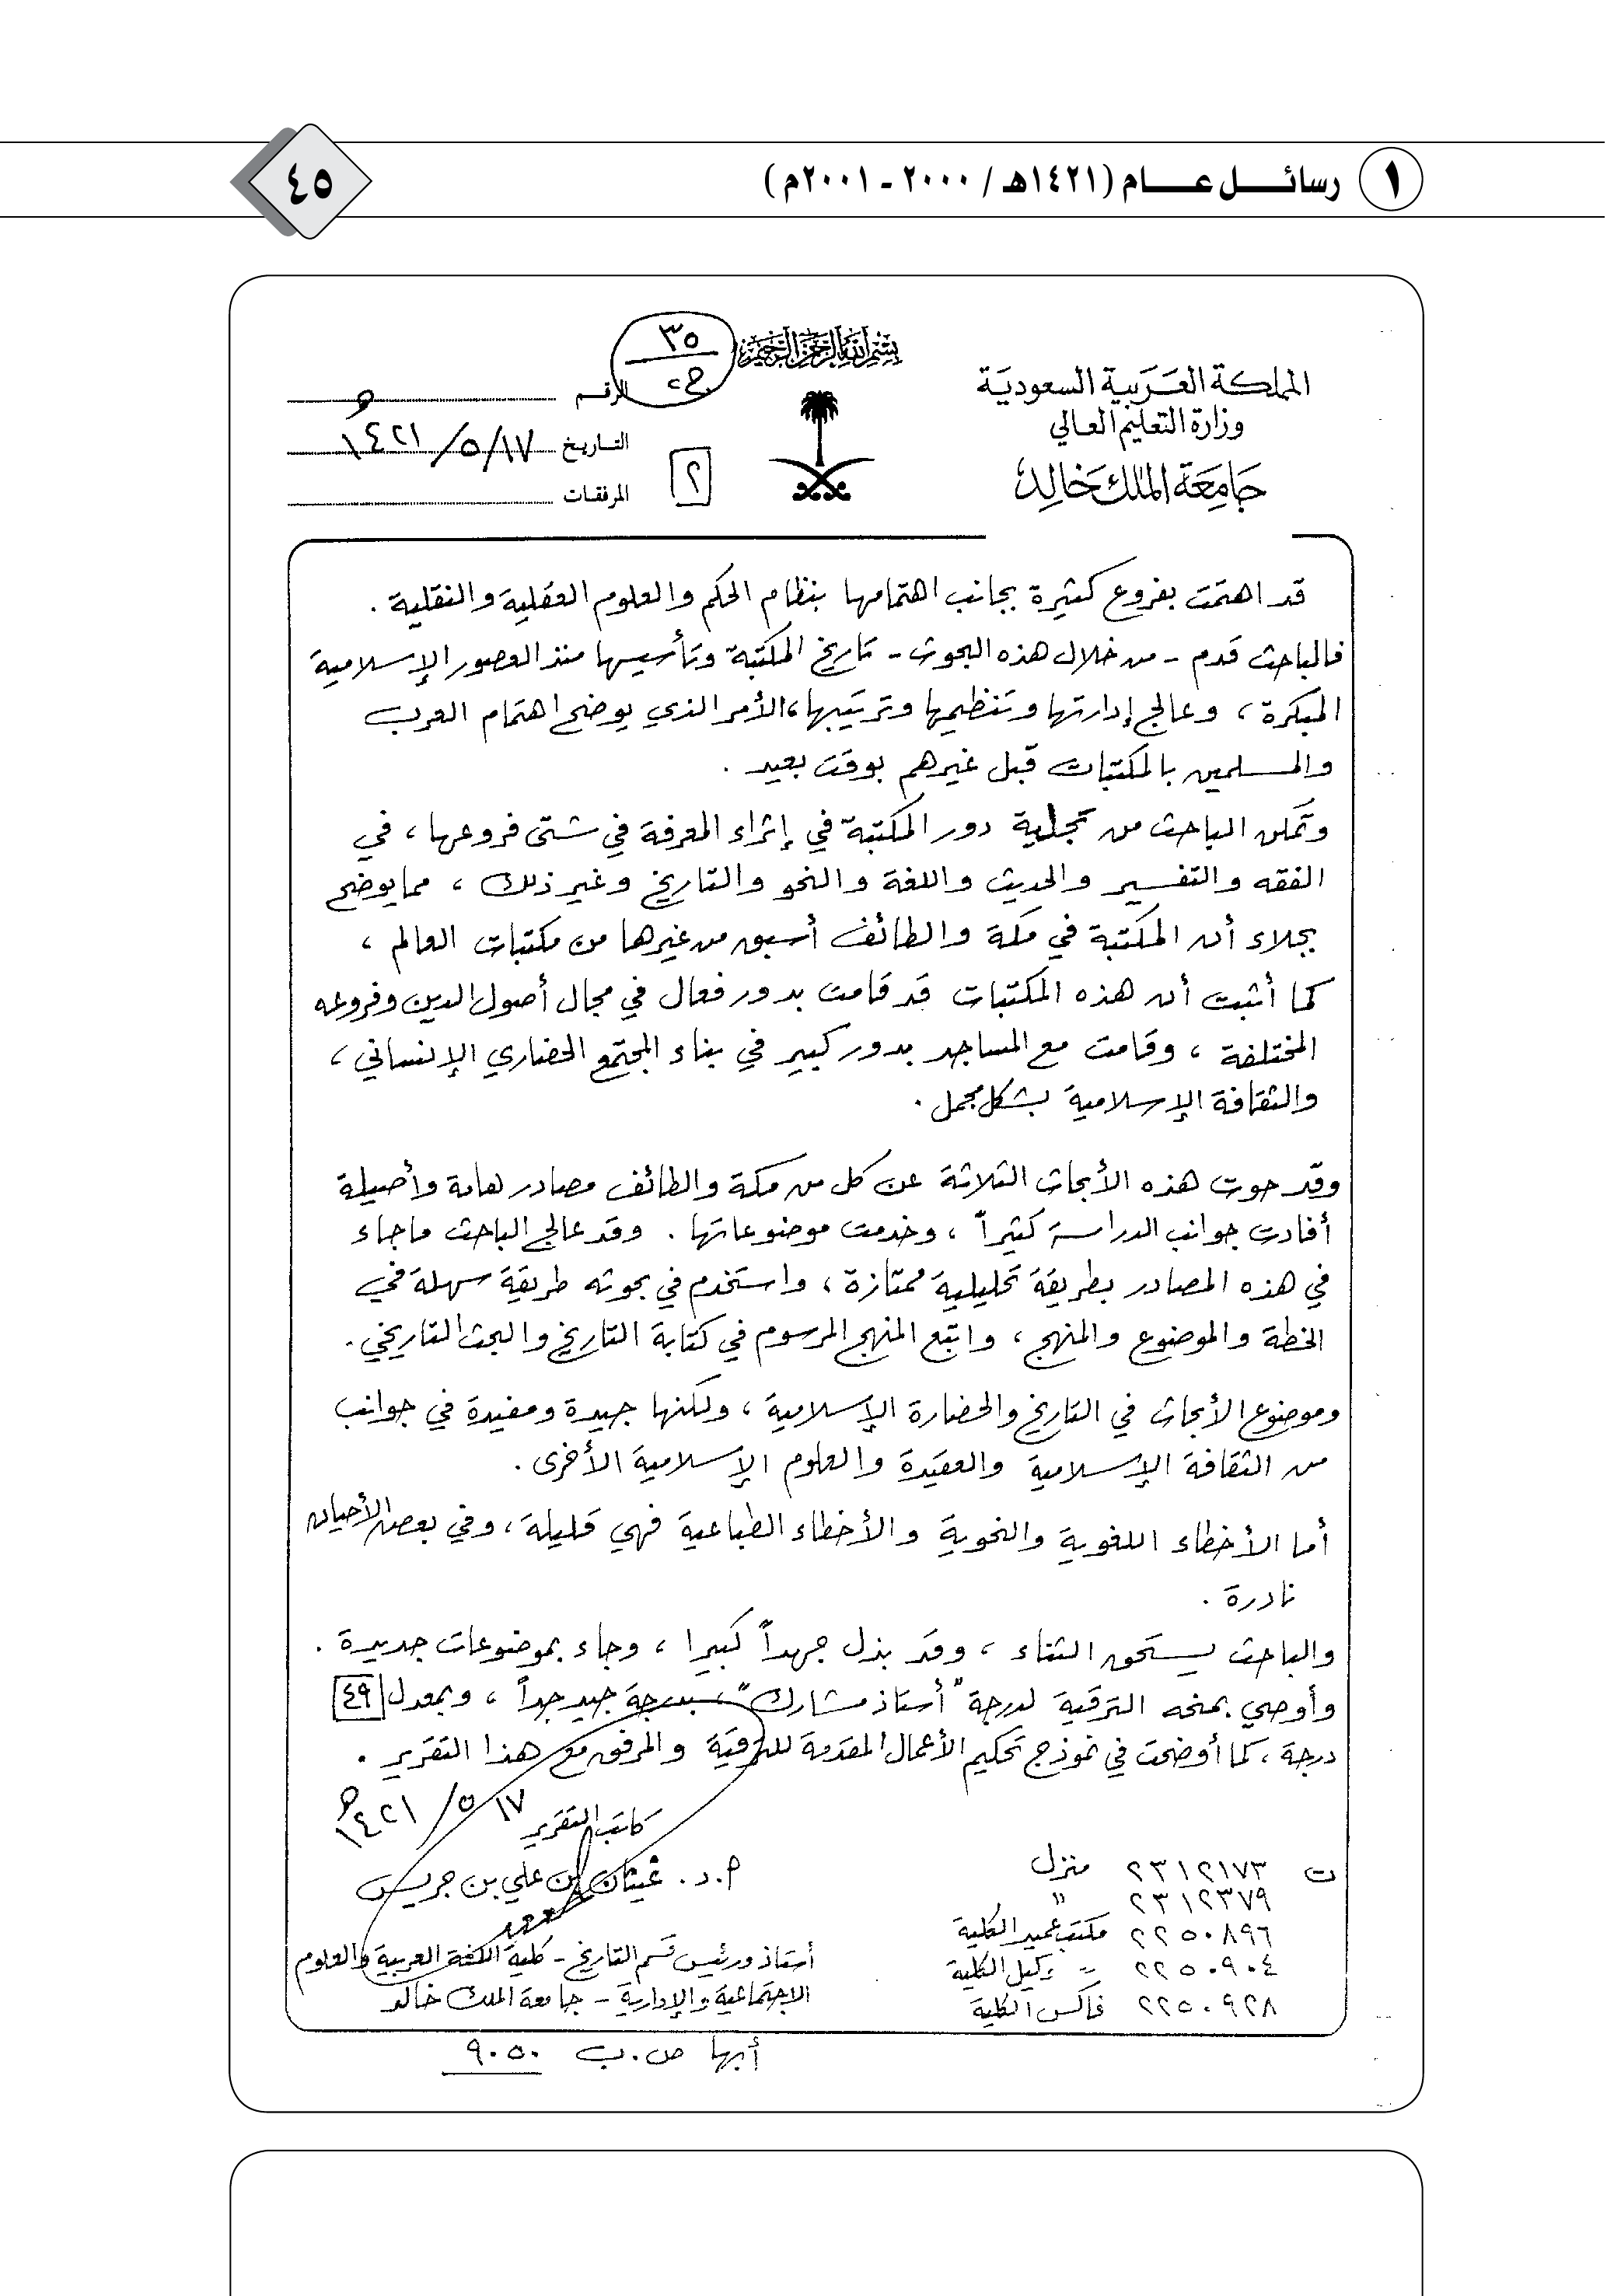 ١ رسائل عام (١٤٢١هـ / ٢٠٠٠ - ٢٠٠١م)
٤٥
بسم الله الرحمن الرحيم
المملكة العربية السعودية
وزارة التعليم العالي
جامعة الملك خالد
٣٥
الرقم
التاريخ ١٧/٥/١٤٢١هـ
المرفقات
٢
قد اهتمت بفروع كثيرة بجانب اهتمامها بنظام الحكم والعلوم العقلية والنقلية .
فالباحث قدم - من خلال هذه البحوث - تاريخ المكتبة وتأسيسها منذ العصور الإسلامية
المبكرة ، وعالج إدارتها وتنظيمها وترتيبها ، الأمر الذي يوضح اهتمام العرب
والمسلمين بالمكتبات قبل غيرهم بوقت بعيد .
وتمكن الباحث من تجلية دور المكتبة في إثراء المعرفة في شتى فروعها ، في
الفقه والتفسير والحديث واللغة والنحو والتاريخ وغير ذلك ، مما يوضح
بجلاء أن المكتبة في مكة والطائف أسبق من غيرها من مكتبات العالم ،
كما أثبت أن هذه المكتبات قد قامت بدور فعال في مجال أصول الدين وفروعه
المختلفة ، وقامت مع المساجد بدور كبير في بناء المجتمع الحضاري الإنساني ،
والثقافة الإسلامية بشكل مجمل .
وقد حوت هذه الأبحاث الثلاثة عن كل من مكة والطائف مصادر هامة وأصيلة
أفادت جوانب الدراسة كثيراً ، وخدمت موضوعاتها . وقد عالج الباحث ما جاء
في هذه المصادر بطريقة تحليلية ممتازة ، واستخدم في بحوثه طريقة سهلة في
الخطة والموضوع والمنهج ، واتبع المنهج المرسوم في كتابة التاريخ والبحث التاريخي .
وموضوع الأبحاث في التاريخ والحضارة الإسلامية ، ولكنها جيدة ومفيدة في جوانب
من الثقافة الإسلامية والعقيدة والعلوم الإسلامية الأخرى .
أما الأخطاء اللغوية والنحوية والأخطاء الطباعية فهي قليلة ، وفي بعض الأحيان
نادرة .
والباحث يستحق الثناء ، وقد بذل جهداً كبيرا ، وجاء بموضوعات جديدة .
وأوصي بمنحه الترقية لدرجة "أستاذ مشارك" بدرجة جيد جداً ، وبمعدل ٤٩
درجة ، كما أوضحت في نموذج تحكيم الأعمال المقدمة للترقية والمرفق مع هذا التقرير .
كاتب التقرير ١٧/٥/١٤٢١هـ
أ.د. غيثان بن علي بن جريس
أستاذ ورئيس قسم التاريخ - كلية اللغة العربية والعلوم
الاجتماعية والإدارية - جامعة الملك خالد
ت ٢٣١٢١٧٣ منزل
٢٣١٢٣٧٩ "
٢٢٥٠٨٩٦ مكتب عميد الكلية
٢٢٥٠٩٠٤ " وكيل الكلية
٢٢٥٠٩٢٨ فاكس الكلية
أبها ص.ب ٩٠٥٠